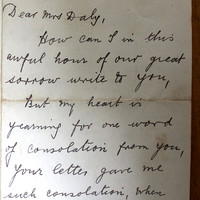 Dear Mrs Daly,
How can I in this
awful hour of our great
sorrow write to you,
But my heart is
yearning for one word
of consolation from you,
Your letter gave me
such consolation, when